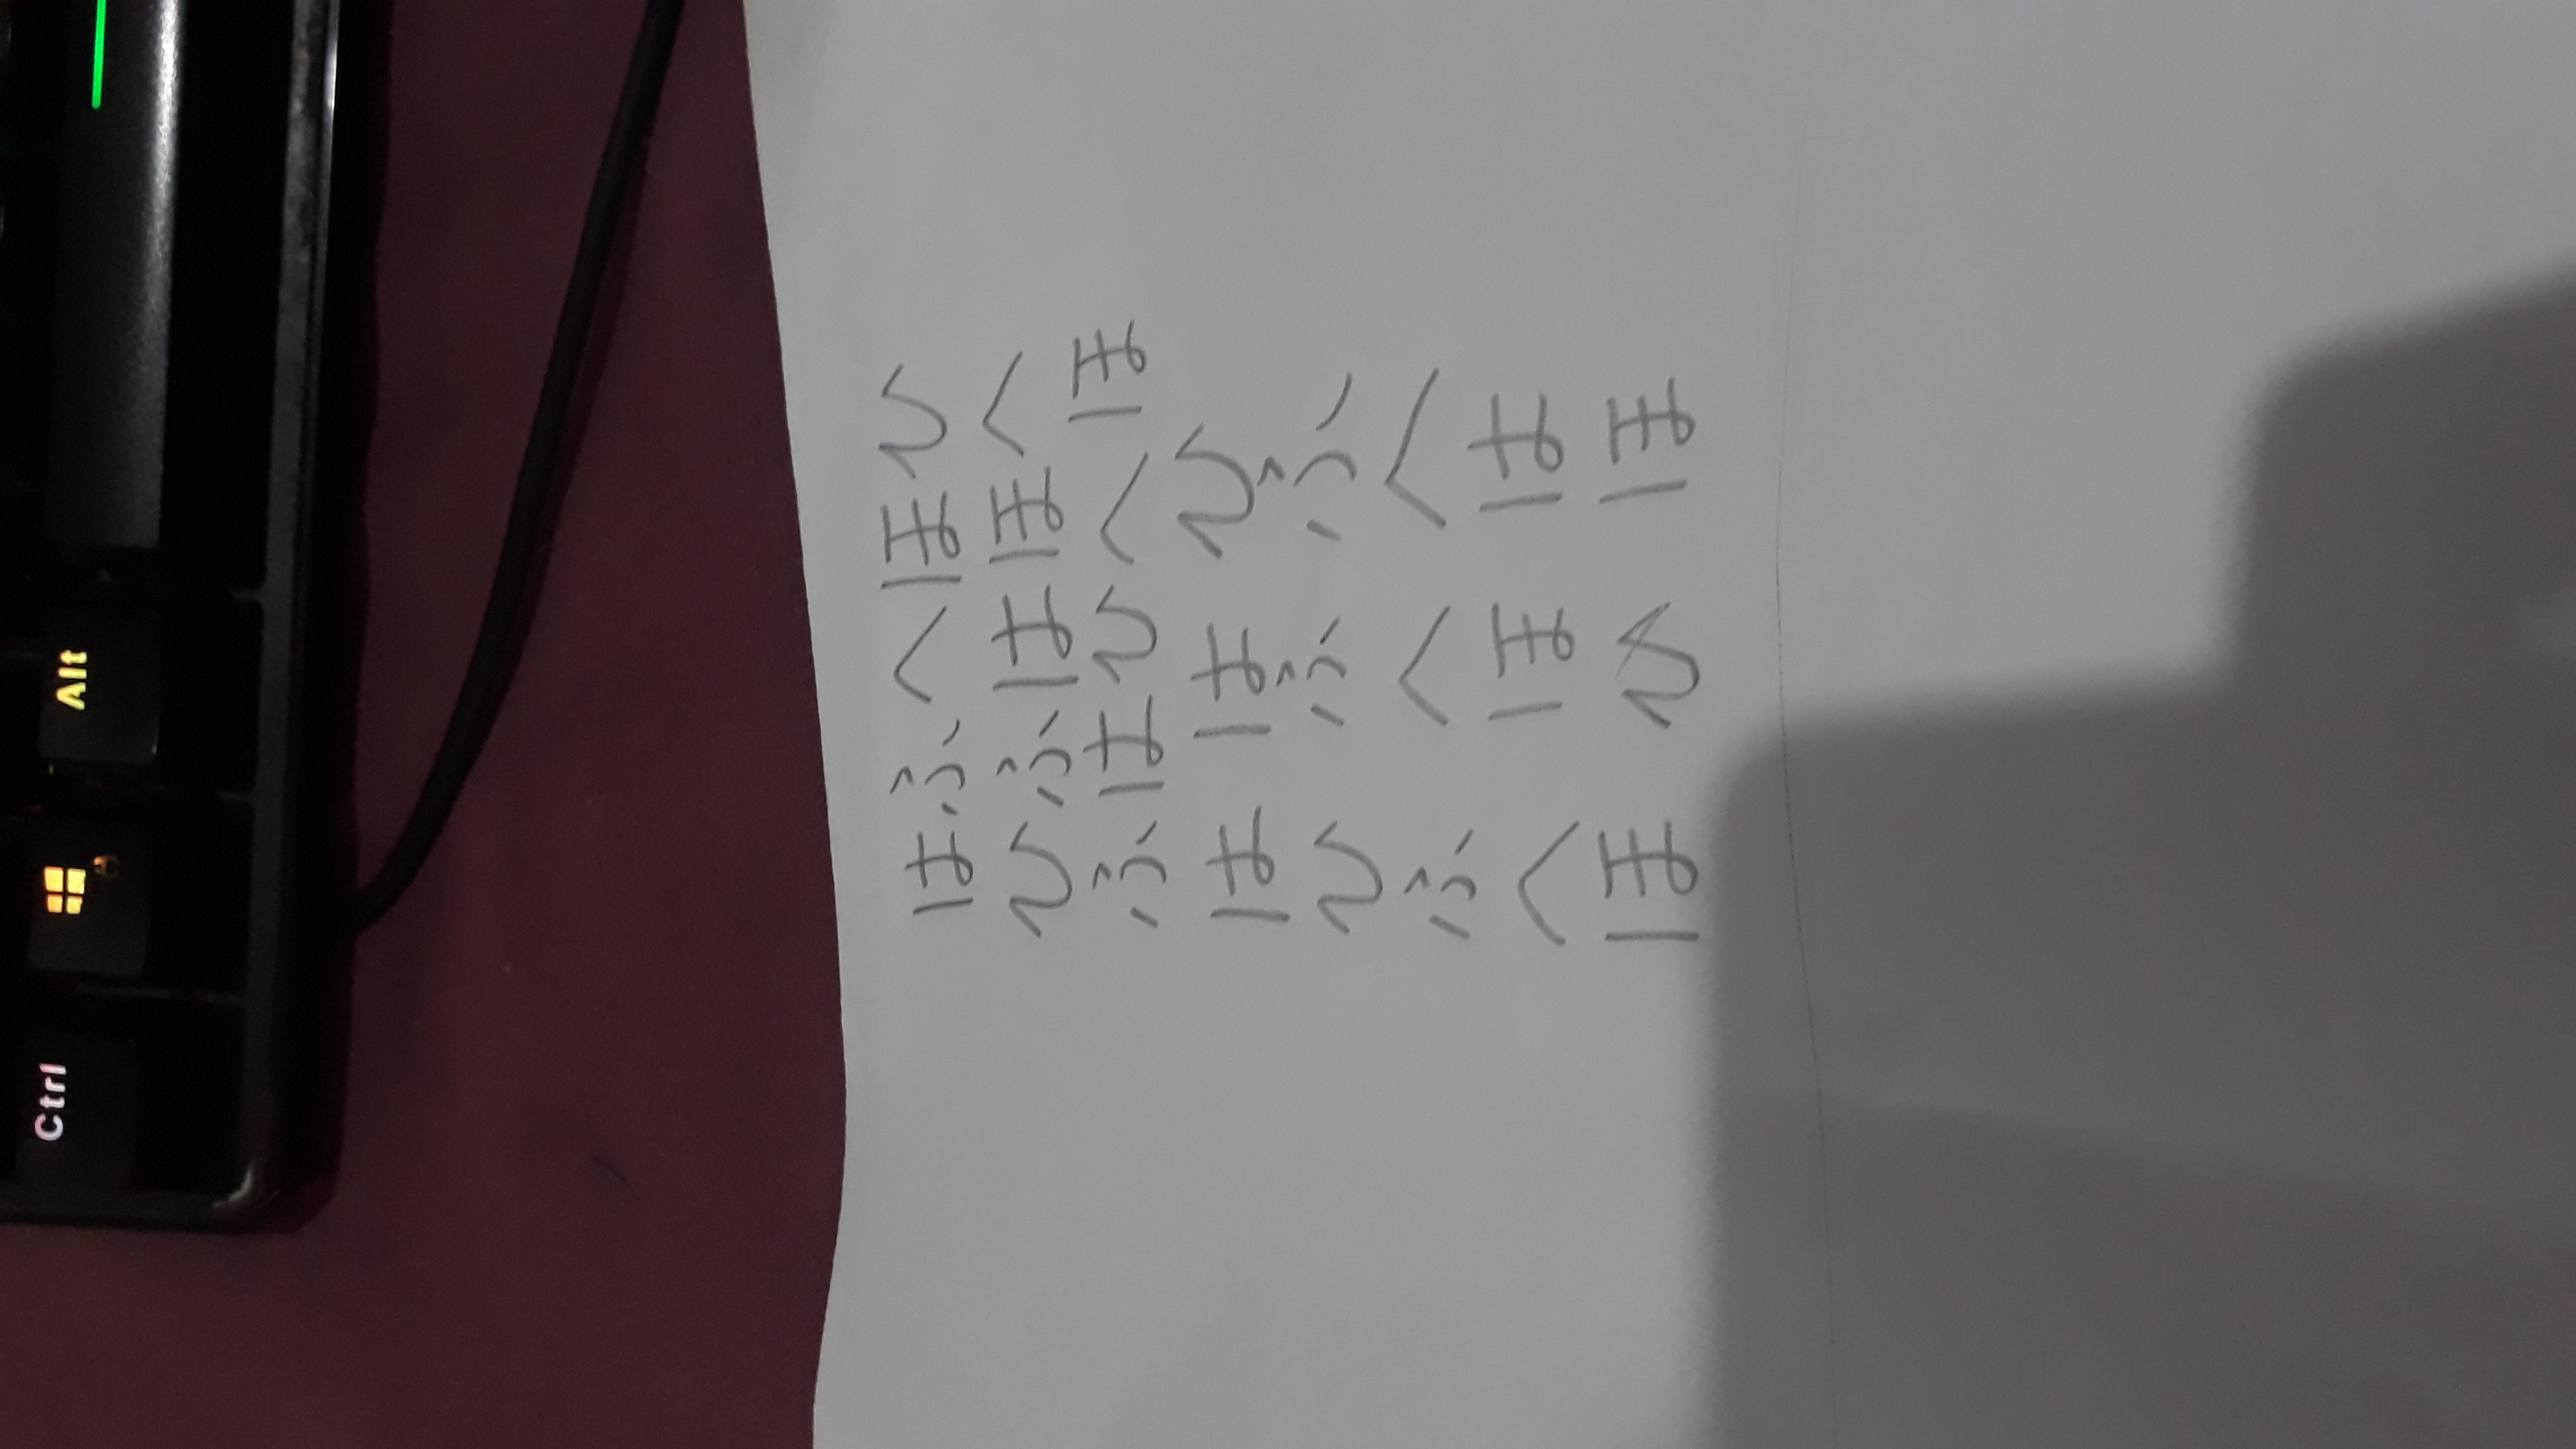 Ctrl Alt
はふへほひ
ひふはほへ
ふはひへほ
は は ひ
ひ ふ ふ
ふ へ へ
へ ほ は
ほ ひ ほ